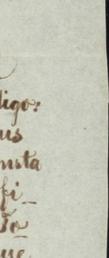 digo:
us
nsta
fi_
To
que